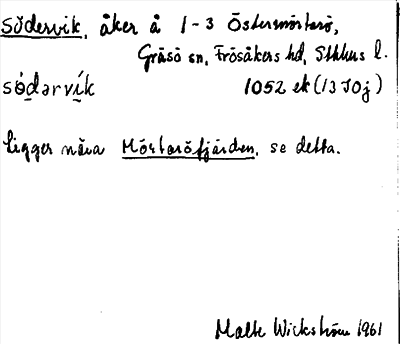 Södervik, åker å 1-3 Östermörtarö,
Gräsö sn, Frösåkers hd, Sthlms l.
sö̀dərvík 1052 ek (13 I 0j)
ligger nära Mörtaröfjärden, se detta.
Malte Wickström 1961